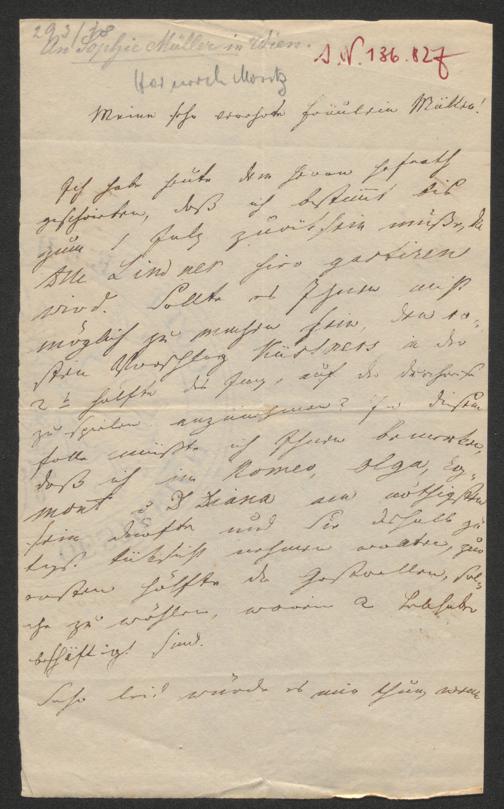 293/38
An Sophie Müller in Wien.
I.N. 136.827
Meine sehr verehrte Fräulein Müller!
Ich habe heute dem Herrn Hofrath
geschrieben, daß ich bestimmt bis
zum 1 July zurück sein müßte, da
Dlle Lindner hier gastiren
wird. Sollte es Ihnen nicht
möglich zu machen sein, den er-
sten Vorschlag Küstners in der
2t Hälfte des Juny, auf die
zu spielen anzunehmen? In diesem
Falle müßte ich Ihnen bemerken,
daß ich im Romeo, Olga, Eg-
mont u D Diana am nöthigsten
sein dürfte und Sie deshalb zu
Rücksicht nehmen zur
ersten Hälfte der Gastrollen, sol-
che zu wählen, worin 2 Liebhaber
beschäftigt sind.
Sehr leid würde es mir thun, wenn